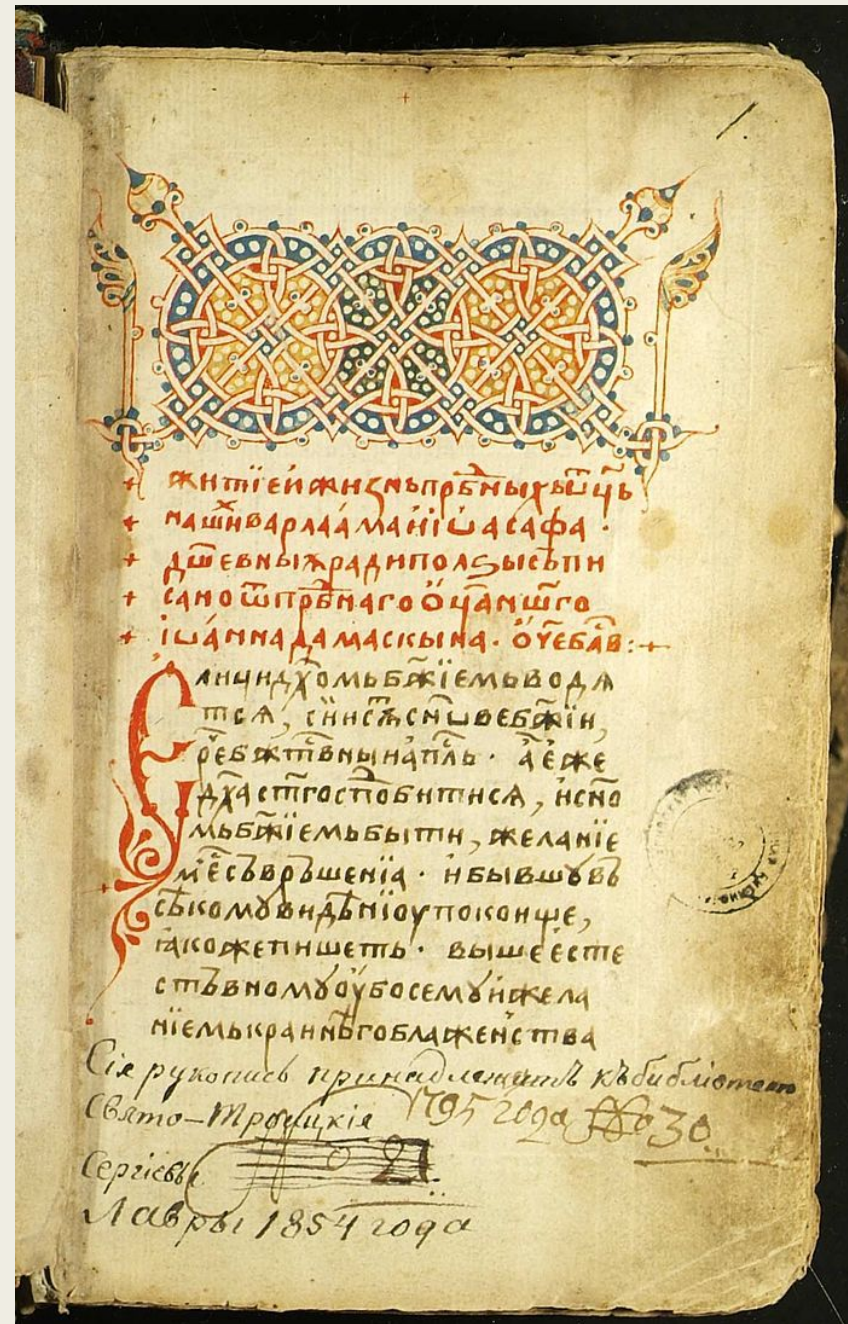 1.
+ житїе и жизнь прⷣбныхь ѿц҃ь
+ нашиⷯ варлаама и іѡасафа ·
+ дш҃евныѧ ради ползы съпи
+ сано ѿ прⷣбнаго ѻц҃а нш҃го
+ іѡанна дамаскына · ѻч҃е бл҃в :+
Єлици дх҃омь бж҃їемь водѧ
тсѧ, сии сѫⷮ сн҃ѡве бж҃їи,
рⷱе бжⷭ҇твⷩныи апⷭ҇лъ · а еже
дх҃а ст҃го сподобитисѧ, и сн҃о
мь бж҃їемь быти, желанїе
мⷨ есъвръшенїа · и бывшꙋ въ
сѣкомꙋ видѣнїоу покои ще,
ꙗкоже пишеть · выше есте
стъвномꙋ оубо семꙋ и жела
нїемь краинѣго блаженства
Сія рукопись принадлежитъ къ библіотекѣ
Свято-Троицкія 1795 года № 30
Сергіевы 21
Лавры 1854 года